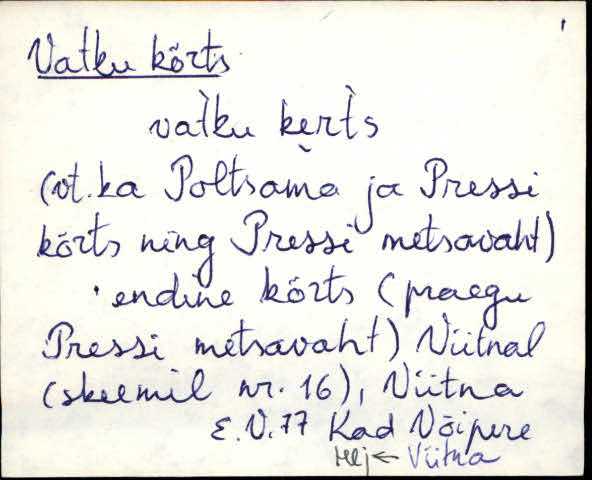 Vatku kõrts
vat̀ku kè̮rt̀s
(vt. ka Poltsama ja Pressi
kõrts ning Pressi metsavaht)
endine kõrts (praegu
Pressi metsavaht) Viitnal
(skeemil nr. 16), Viitna
E.V.77 Kad Võipere
Hlj ← Viitna